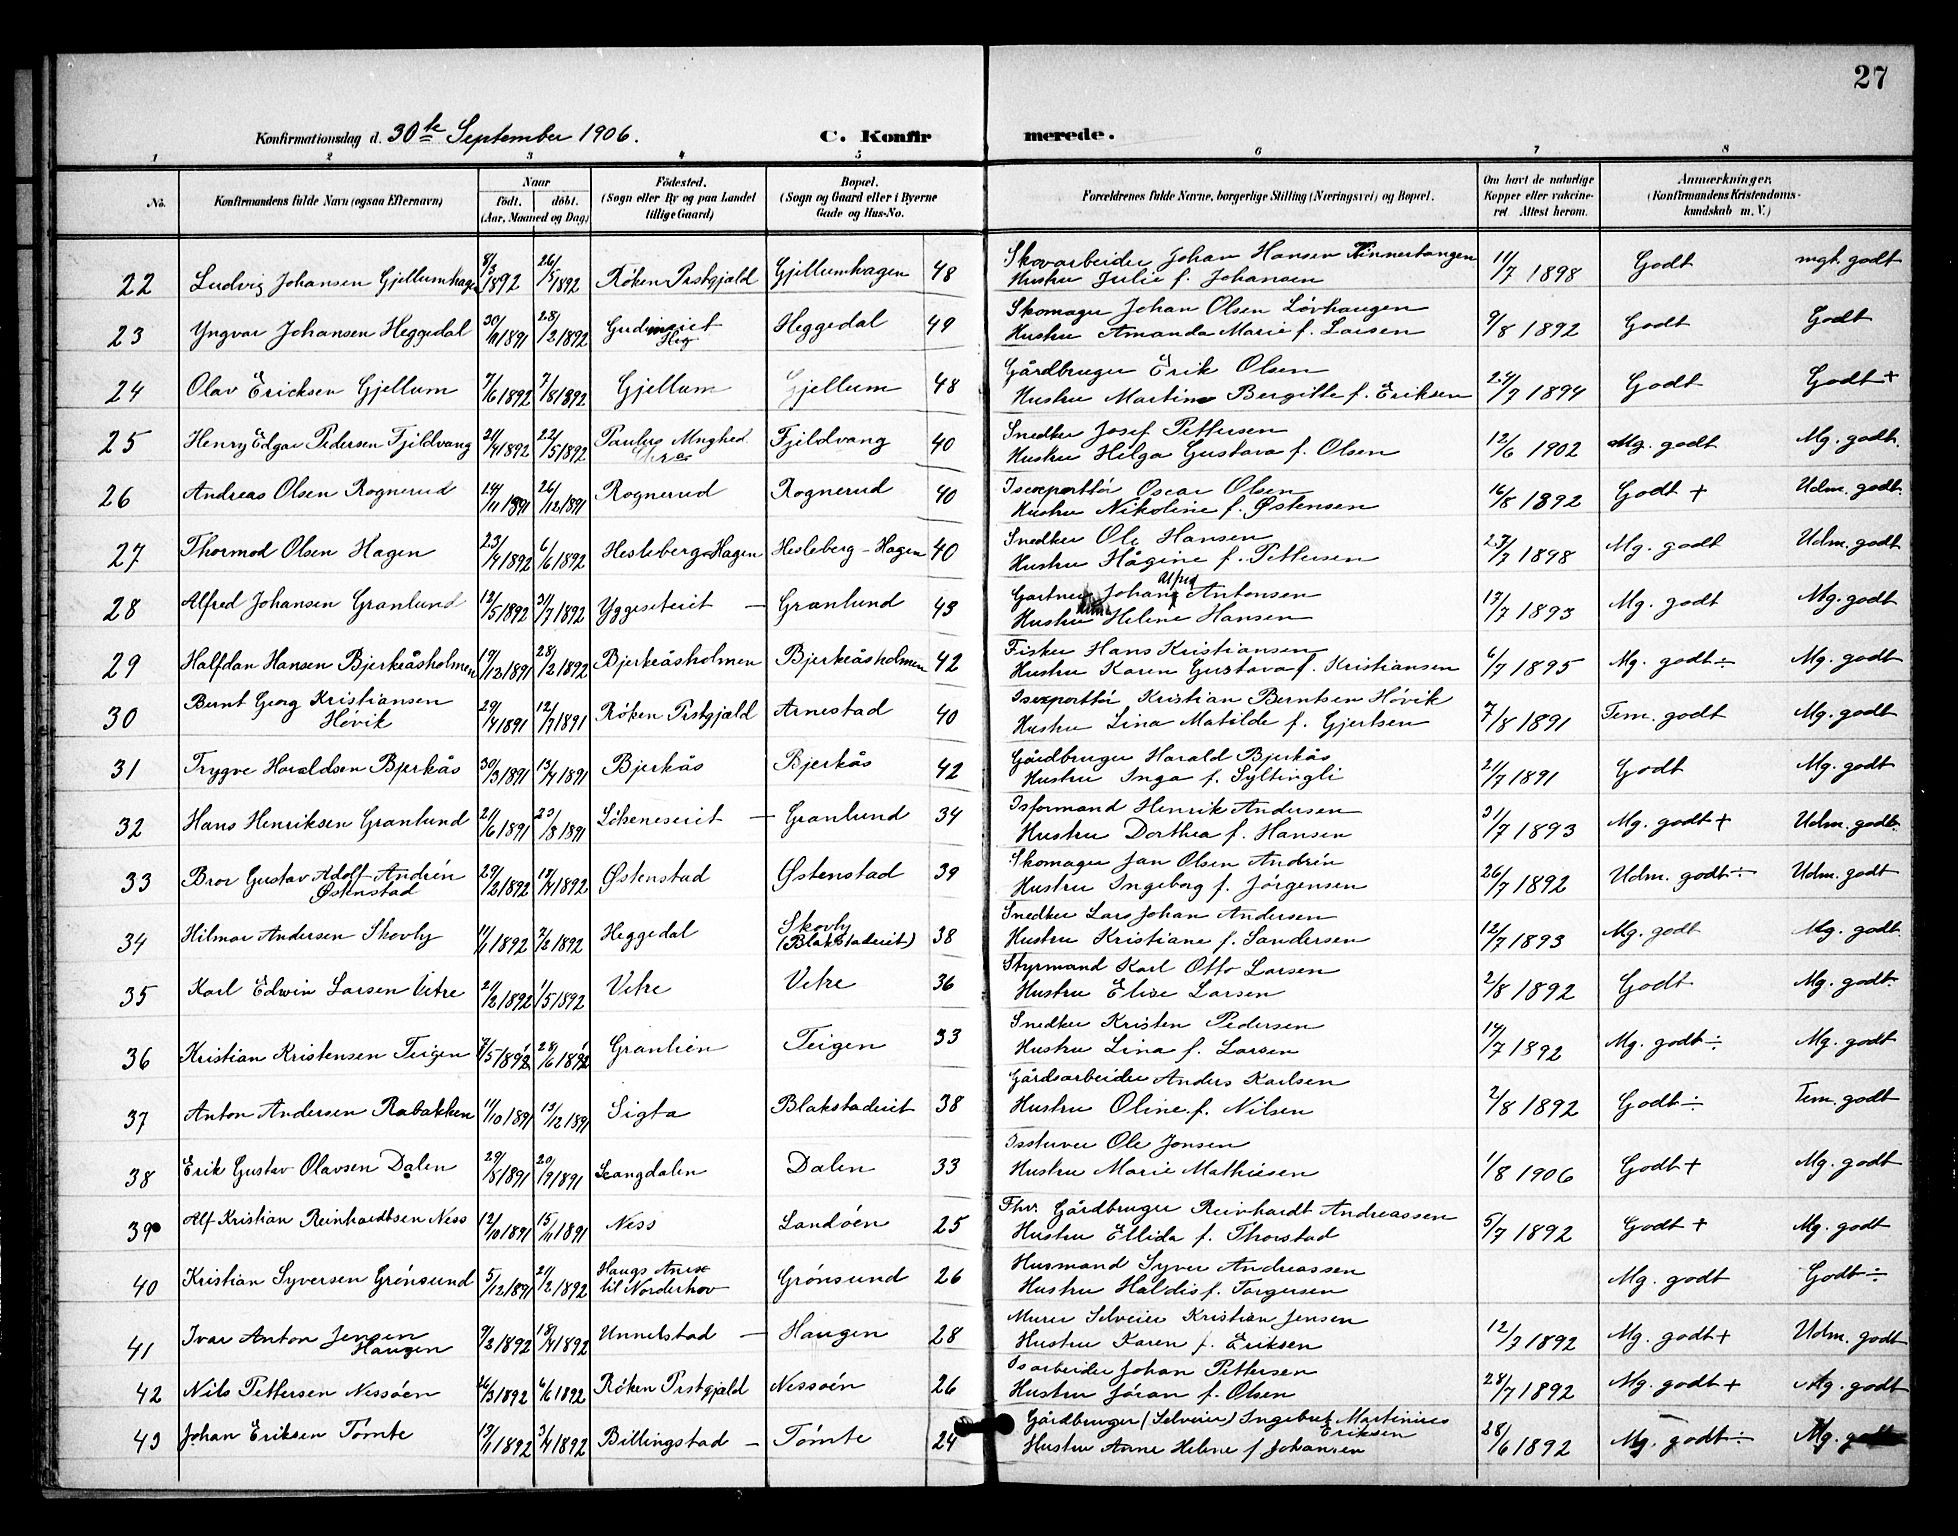 27
Konfirmationsdag d. 30te September 1906. C. Konfirmerede.
1 2 3 4 5 6 7 8
No. Konfirmandens fulde Navn (ogsaa Efternavn) Naar født. døbt. (Aar, Maaned og Dag) Fødested. (Sogn eller By og paa Landet tillige Gaard) Bopæl. (Sogn og Gaard eller i Byerne Gade og Hus-No. Forældrenes fulde Navne, borgerlige Stilling (Næringsvei) og Bopæl. Om havt de naturlige Kopper eller vakcineret. Attest herom. Anmærkninger, (Konfirmandens Kristendomskundskab m. V.)
22 Ludvig Johansen Gjellumhagen 8/3 1892 26/5 1892 Röken Prstgjæld Gjellumhagen 48 Skovarbeider Johan Hansen Kinnertangen 11/7 1898 Godt mgt godt
Hustru Julie f. Johansen
23 Yngvar Johansen Heggedal 30/11 1891 28/2 1892 Heg Heggedal 49 Skomager Johan Olsen Lövhaugen 9/8 1892 Godt Godt
Hustru Amanda Marie f. Larsen
24 Olav Ericksen Gjellum 7/6 1892 7/8 1892 Gjellum Gjellum 48 Gårdbruger Erik Olsen 24/7 1894 Godt Godt+
Hustru Martine Bergitte f. Eriksen
25 Henry Edgar Pedersen Fjildvang 21/4 1892 22/5 1892 Paulus Mnghed Fjildvang 40 Snedker Josef Pettersen 12/6 1902 Mg. godt Mg. godt.
Hustru Helga Gustava f. Olsen
26 Andreas Olsen Rognerud 24/11 1891 26/12 1891 Rognerud Rognerud 40 Isexporttör Oscar Olsen 16/8 1892 Godt + Udm. godt.
Hustru Nikoline f. Østensen
27 Thormod Olsen Hagen 23/4 1892 6/6 1892 Hesleberg-Hagen Hesleberg-Hagen 40 Snedker Ole Hansen 23/7 1898 Mg. godt Udm. godt
Hustru Hågine f. Pettersen
28 Alfred Johansen Granlund 12/5 1892 31/7 1892 Yggeseteiet — Granlund 43 Gartner Johan Alfred Antonsen 13/7 1893 Mg. godt Mg. godt
Hustru Helene Hansen
29 Halfdan Hansen Bjerkeåsholmen 19/12 1891 28/2 1892 Bjerkeåsholmen Bjerkeåsholmen 42 Fisker Hans Kristiansen 6/7 1895 Mg. godt ÷ Mg. godt
Hustru Karen Gustava f. Kristiansen
30 Bernt Georg Kristiansen 29/4 1891 12/7 1891 Röken Prstgjæld Arnestad 40 Isexporttör Kristian Berntsen Hövik 7/8 1891 Tem. godt Mg. godt
Hövik Hustru Lina Matilde f. Gjertsen
31 Trygve Haraldsen Bjerkås 30/3 1891 13/4 1891 Bjerkås Bjerkås 42 Gårdbruger Harald Bjerkås 21/7 1891 Godt Mg. godt
Hustru Inga f. Syltingli
32 Hans Henriksen Granlund 21/6 1891 23/8 1891 Löheneseiet — Granlund 34 Isformand Henrik Andersen 31/7 1893 Mg. godt + Udm. godt.
Hustru Dorthea f. Hansen
33 Bror Gustav Adolf Andrén 29/2 1892 17/4 1892 Østenstad Østenstad 39 Skomager Jan Olsen Andrén 26/7 1892 Udm. godt ÷ Udm. godt
Østenstad Hustru Ingeborg f. Jörgensen
34 Hilmar Andersen Skovly 11/1 1892 7/2 1892 Heggedal Skovly (Blakstadeiet) 38 Snedker Lars Johan Andersen 12/7 1893 Mg. godt Mg. godt.
Hustru Kristiane f. Sandersen
35 Karl Edwin Larsen Vetre 21/2 1892 1/5 1892 Vetre Vetre 36 Styrmand Karl Otto Larsen 2/8 1892 Godt Mg. godt.
Hustru Elise Larsen
36 Kristian Kristensen Teigen 7/5 1892 28/6 1892 Granlien Teigen 33 Snedker Kristen Pedersen 14/7 1892 Mg. godt ÷ Mg. godt
Hustru Lina f. Larsen
37 Anton Andersen Rabakken 11/10 1891 13/12 1891 Sigta Blakstadeiet 38 Gårdsarbeider Anders Karlsen 2/8 1892 Godt ÷ Tem. godt
Hustru Oline f. Nilsen
38 Erik Gustav Olavsen Dalen 29/8 1891 20/9 1891 Leangdalen Dalen 33 Isstuver Ole Jonsen 1/8 1906 Godt + Mg. godt
Hustru Marie Mathiesen
39 Alf Kristian Reinhardtsen Ness 12/10 1891 15/11 1891 Ness Landöen 25 Fhv. Gårdbruger Reinhardt Andreassen 5/7 1892 Godt + Mg. godt
Hustru Ellida f. Thorstad
40 Kristian Syversen Grönsund 5/12 1891 21/2 1892 Haugs Anex til Norderhov Grönsund 26 Husmand Syver Andreassen Mg. godt Godt ÷
Hustru Haldis f. Torgersen
41 Ivar Anton Jensen 9/2 1892 18/4 1892 Unnelstad — Haugen 28 Murer Selveier Kristian Jensen 12/7 1892 Mg. godt + Udm. godt
Haugen Hustru Karen f. Eriksen
42 Nils Pettersen Nessöen 26/3 1892 6/6 1892 Röken Prstgjæld Nessöen 26 Isarbeider Johan Pettersen 28/7 1892 Mg. godt + Mg. godt
Hustru Jöran f. Olsen
43 Johan Eriksen Tömte 13/1 1892 3/4 1892 Billingstad — Tömte 24 Gårdbruger (Selveier) Ingebret Martinius Eriksen 28/6 1892 Mg. godt ÷ Mg. godt
Hustru Anne Helene f. Johansen